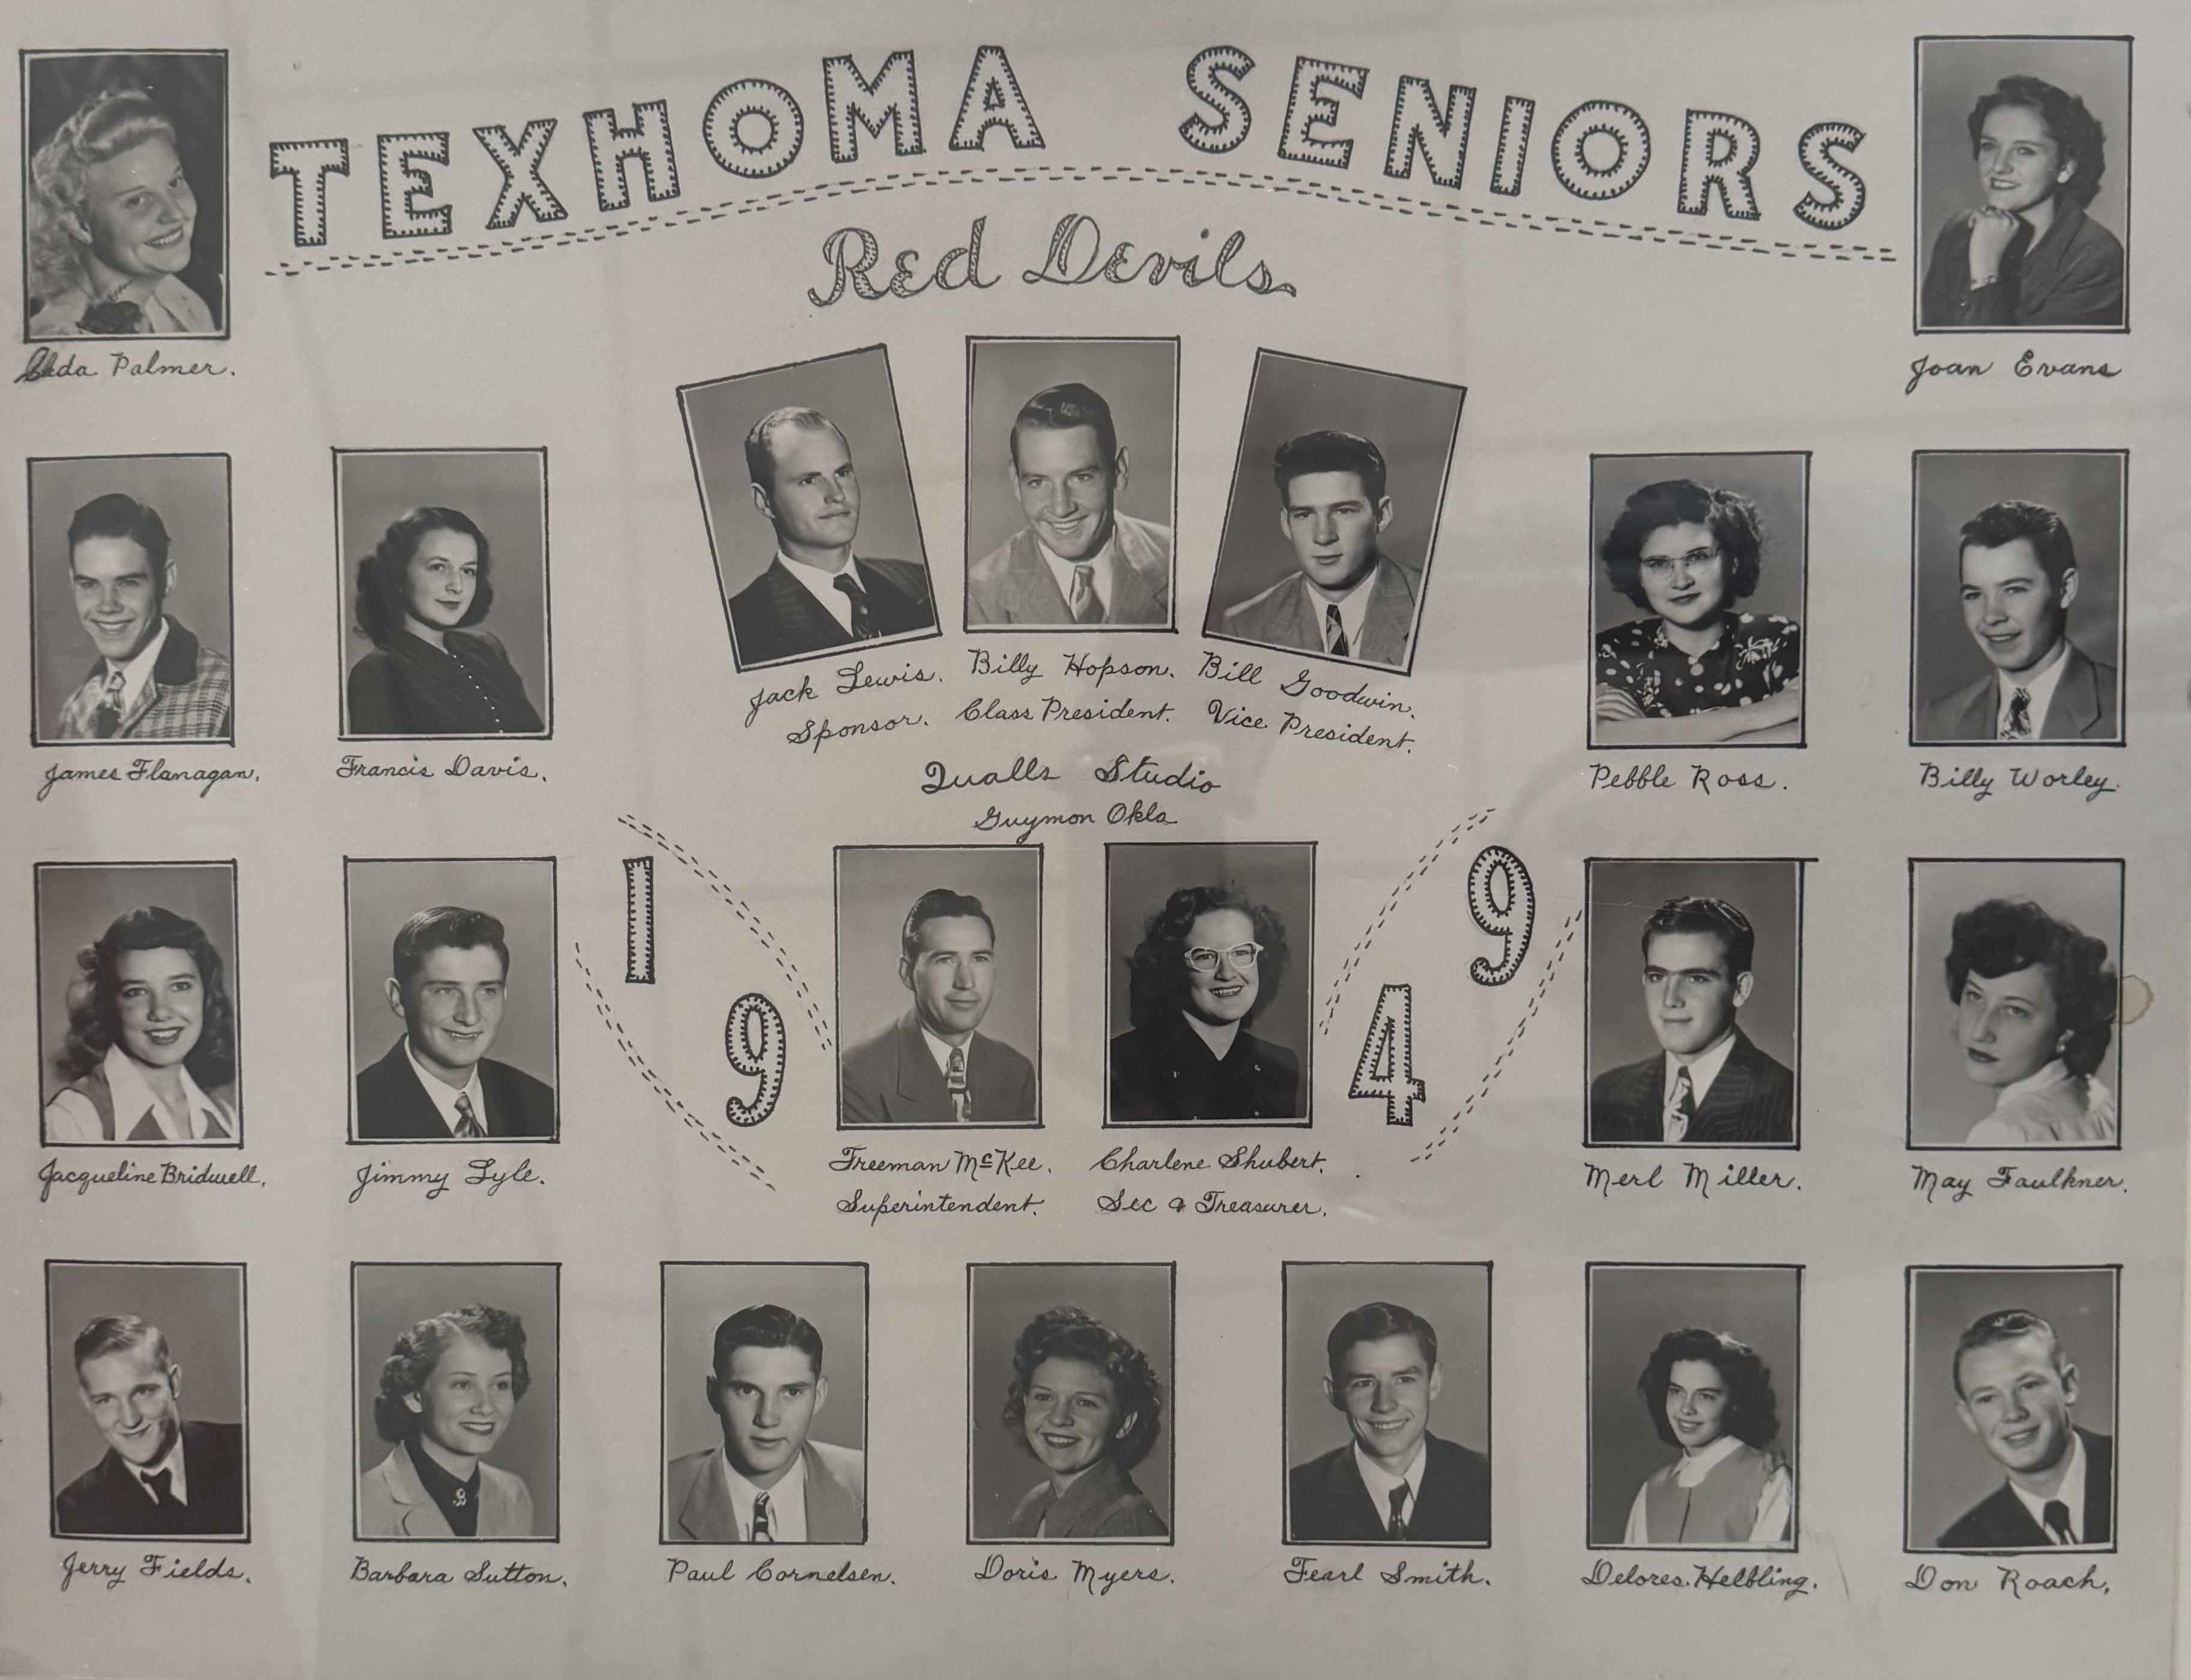 TEXHOMA SENIORS
Red Devils
Palmer.
Joan Evans
Jack Lewis. Billy Hopson. Bill Goodwin.
Sponsor. Class President. Vice President.
James Flanagan. Francis Davis.
Pebble Ross. Billy Worley.
Qualls Studio
Guymon Okla
1949
Jacqueline Bridwell. Jimmy Lyle.
Freeman McKee. Charlene Shubert.
Superintendent. Sec & Treasurer.
Merl Miller. May Faulkner.
Jerry Fields. Barbara Sutton. Paul Cornelsen. Doris Myers. Fearl Smith. Delores Helbling. Don Roach.